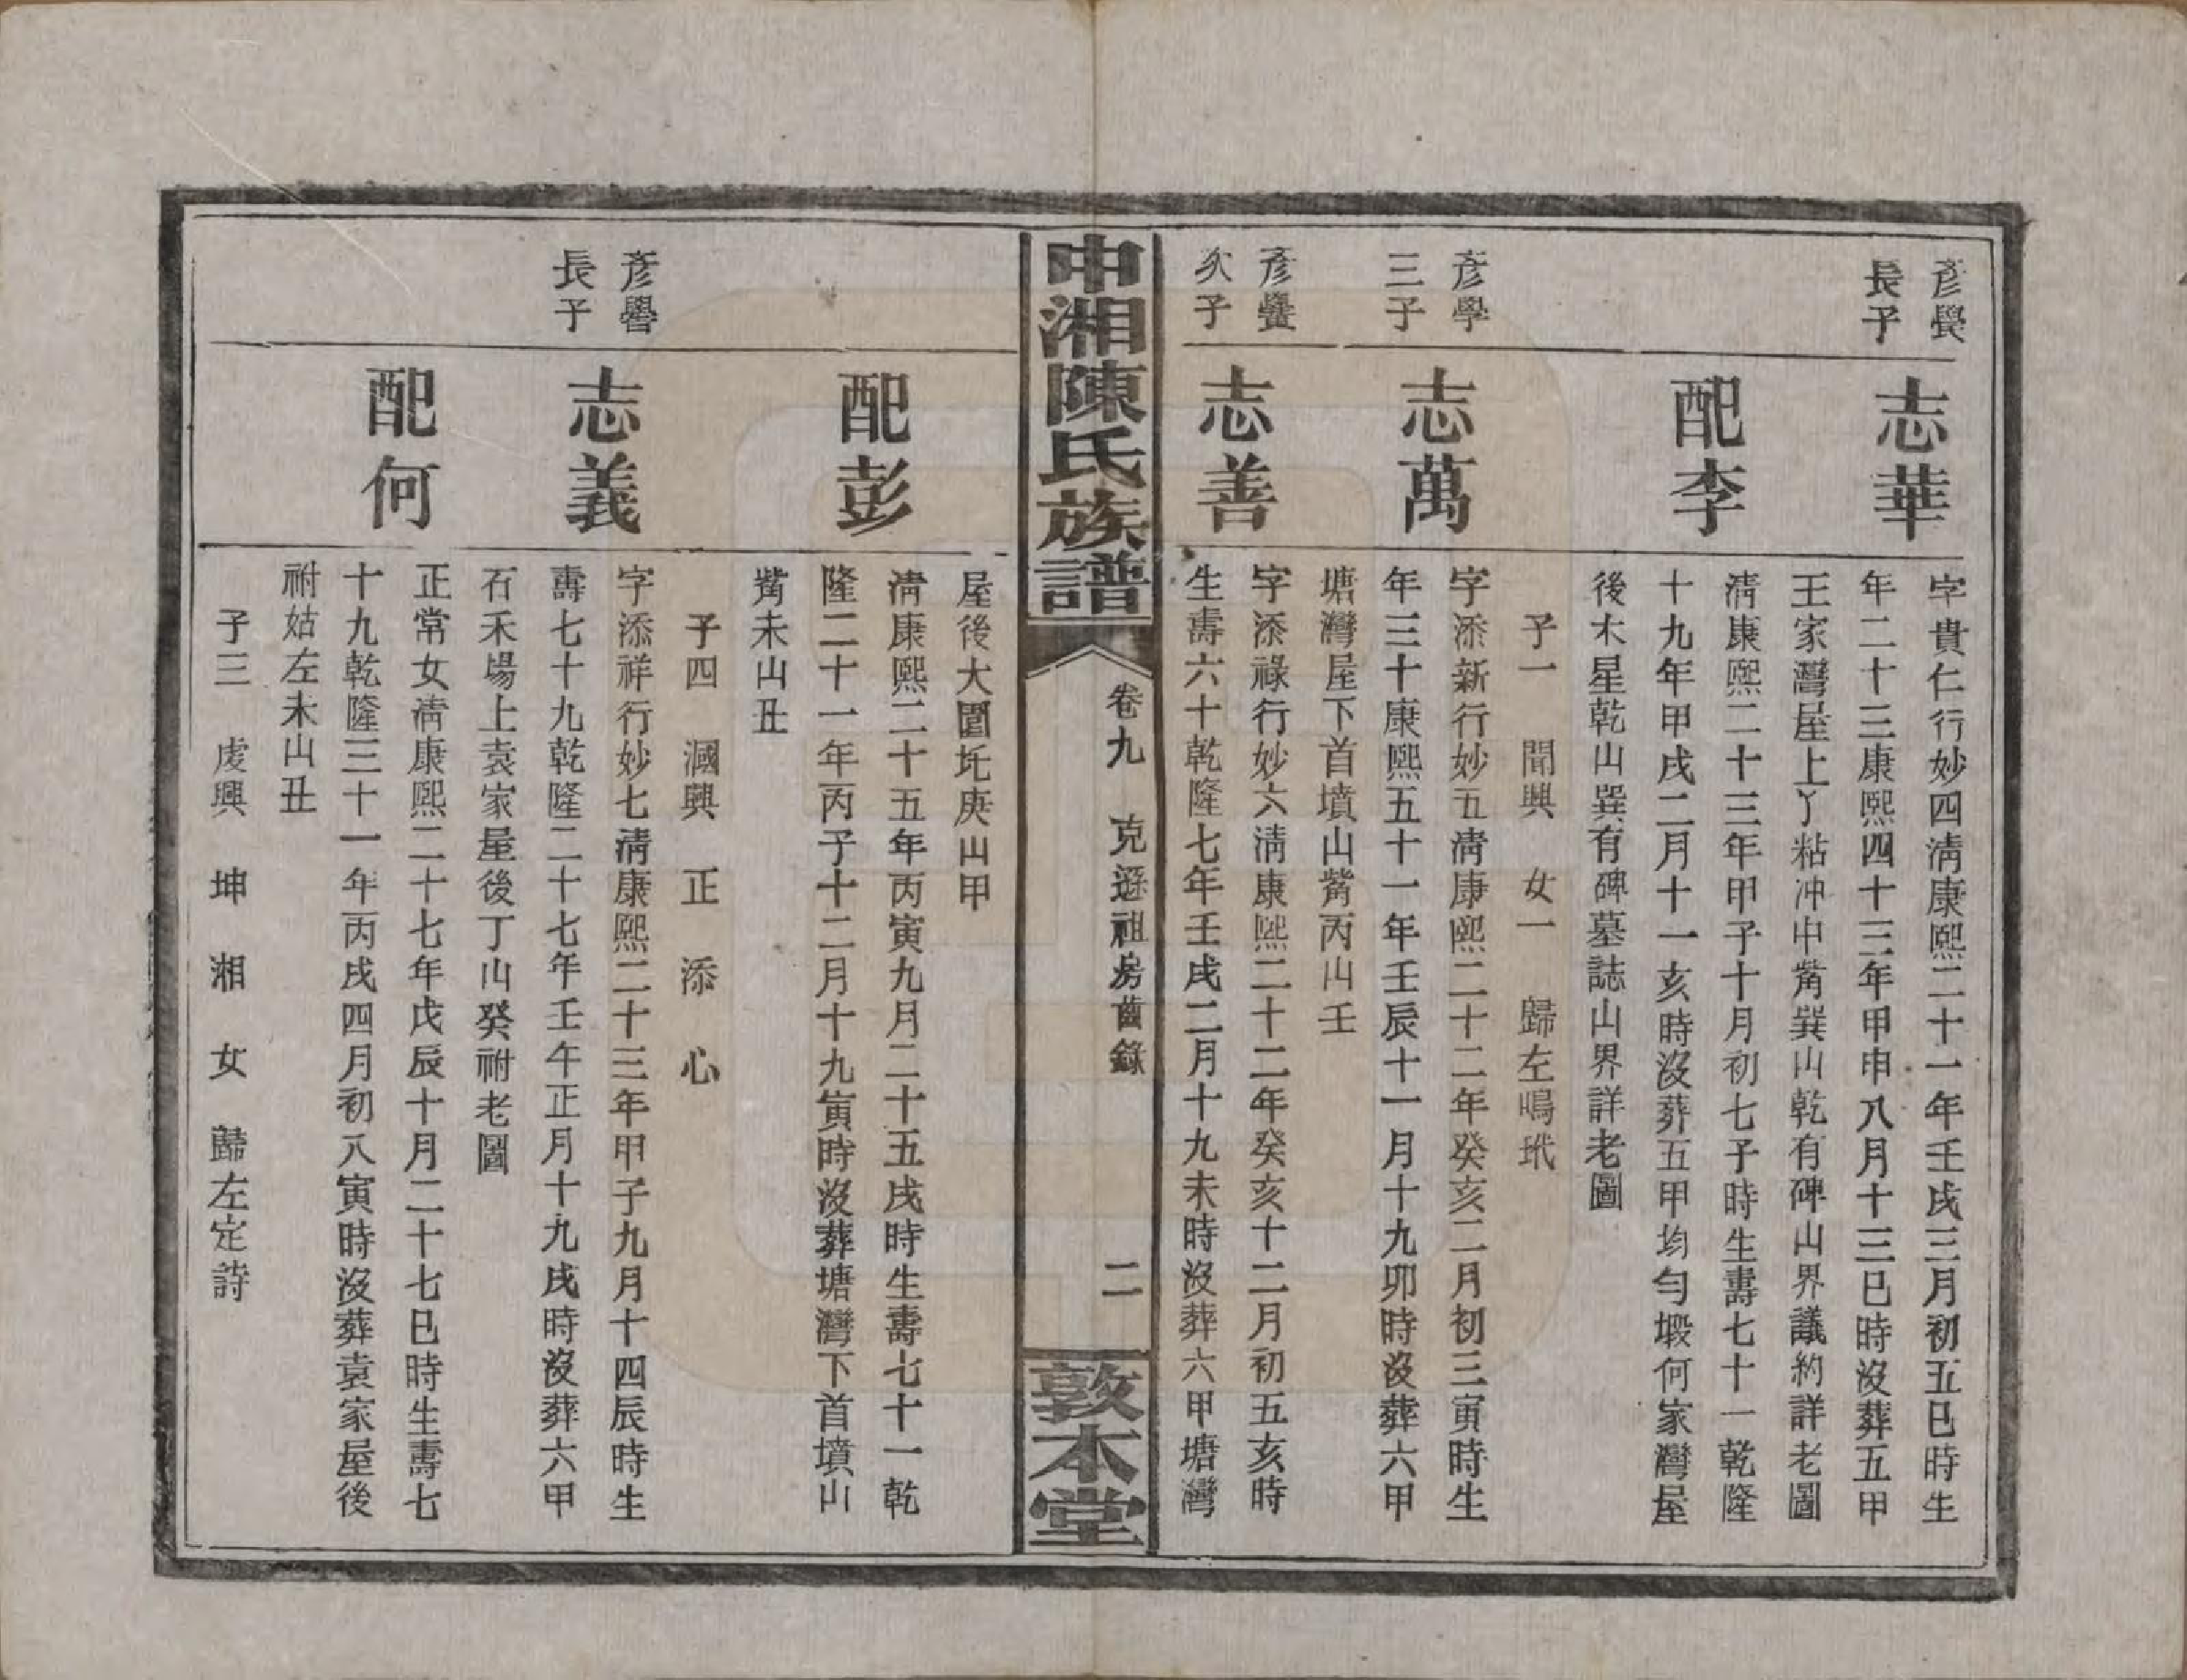 長子
志華
字貴仁行妙四淸康熙二十一年壬戌三月初五巳時生
年二十三康熙四十三年甲申八月十三巳時沒葬五甲
王家灣屋上丫粘冲中觜巽山乾有碑山界議約詳老圖
配李
淸康熙二十三年甲子十月初七子時生壽七十一乾隆
十九年甲戌二月十一亥時沒葬五甲均勻塅何家灣屋
後木星乾山巽有碑墓誌山界詳老圖
子一 聞興 女一 歸左鳴玳
彥學
三子
志萬
字添新行妙五淸康熙二十二年癸亥二月初三寅時生
年三十康熙五十一年壬辰十一月十九卯時沒葬六甲
塘灣屋下首墳山觜丙山壬
次子
志善
字添祿行妙六淸康熙二十二年癸亥十二月初五亥時
生壽六十乾隆七年壬戌二月十九未時沒葬六甲塘灣
中湘陳氏族譜
卷九 克遜祖房齒錄 二
敦本堂
屋後大圍圫庚山甲
配彭
淸康熙二十五年丙寅九月二十五戌時生壽七十一乾
隆二十一年丙子十二月十九寅時沒葬塘灣下首墳山
觜未山丑
子四 漍興 正 添 心
彥譽
長子
志義
字添祥行妙七淸康熙二十三年甲子九月十四辰時生
壽七十九乾隆二十七年壬午正月十九戌時沒葬六甲
石禾場上袁家屋後丁山癸祔老圖
配何
正常女淸康熙二十七年戊辰十月二十七巳時生壽七
十九乾隆三十一年丙戌四月初八寅時沒葬袁家屋後
祔姑左未山丑
子三 虔興 坤 湘 女 歸左定詩